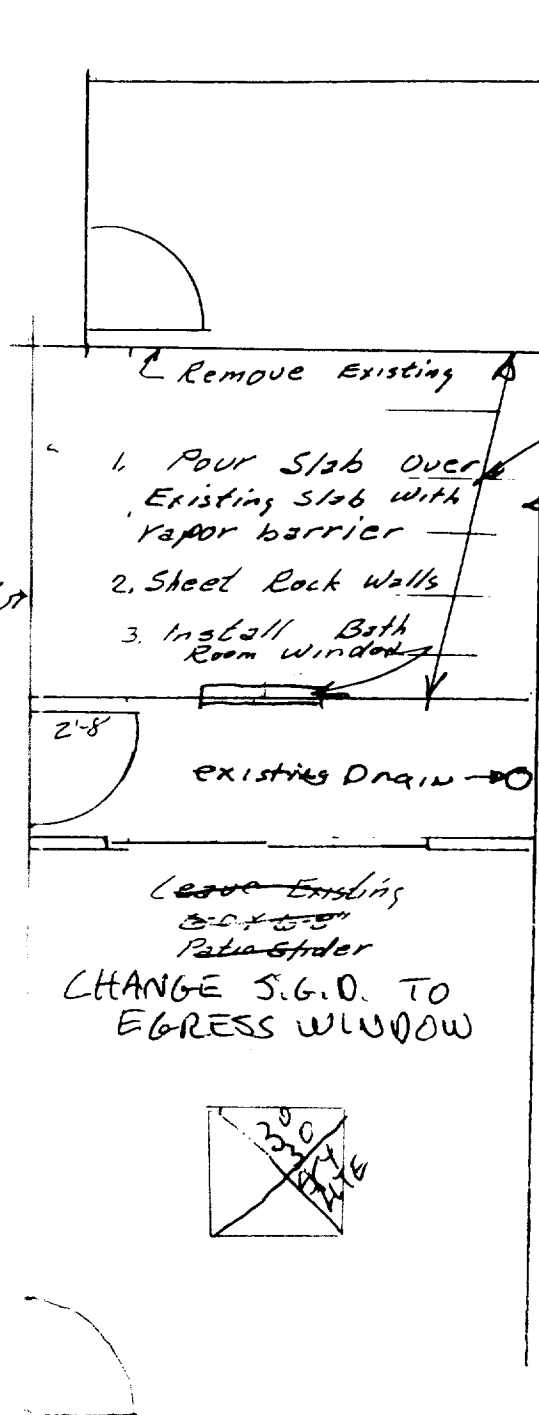 Remove Existing
1. Pour Slab Over
Existing Slab with
Vapor barrier
2. Sheet Rock Walls
3. Install Bath
Room Window
2'-8"
existing Drain
Leave Existing
Patio Slider
CHANGE S.G.D. TO
EGRESS WINDOW
3030